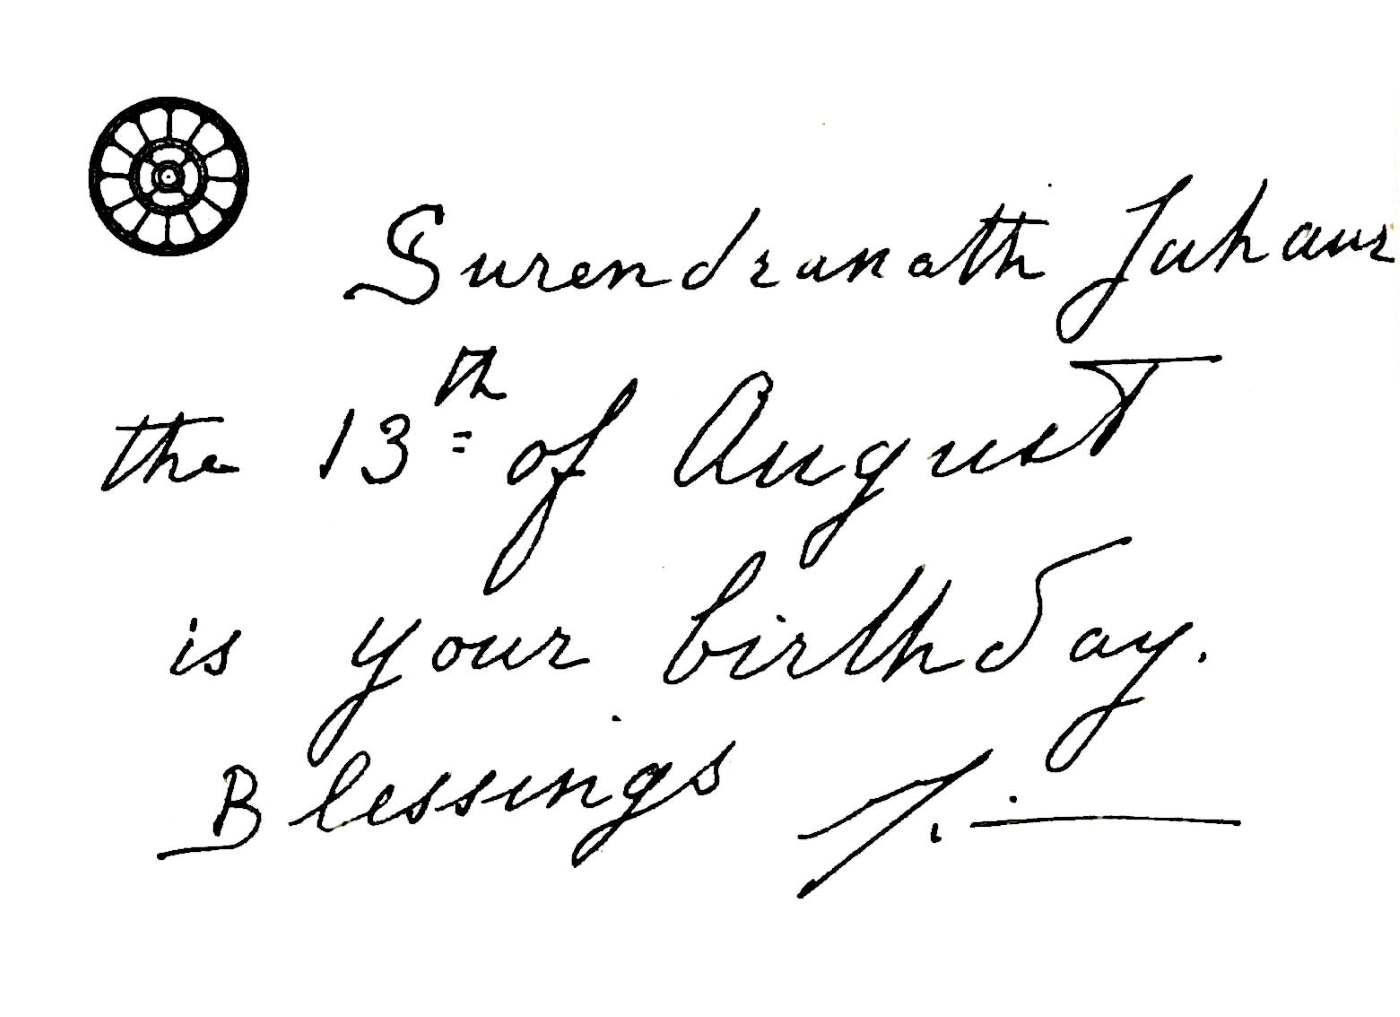 Surendranath Jauhar
the 13th of August
is your birthday.
Blessings